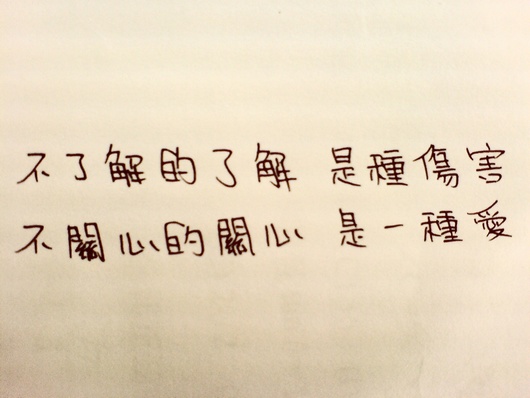 不了解的了解 是種傷害
不關心的關心 是一種愛